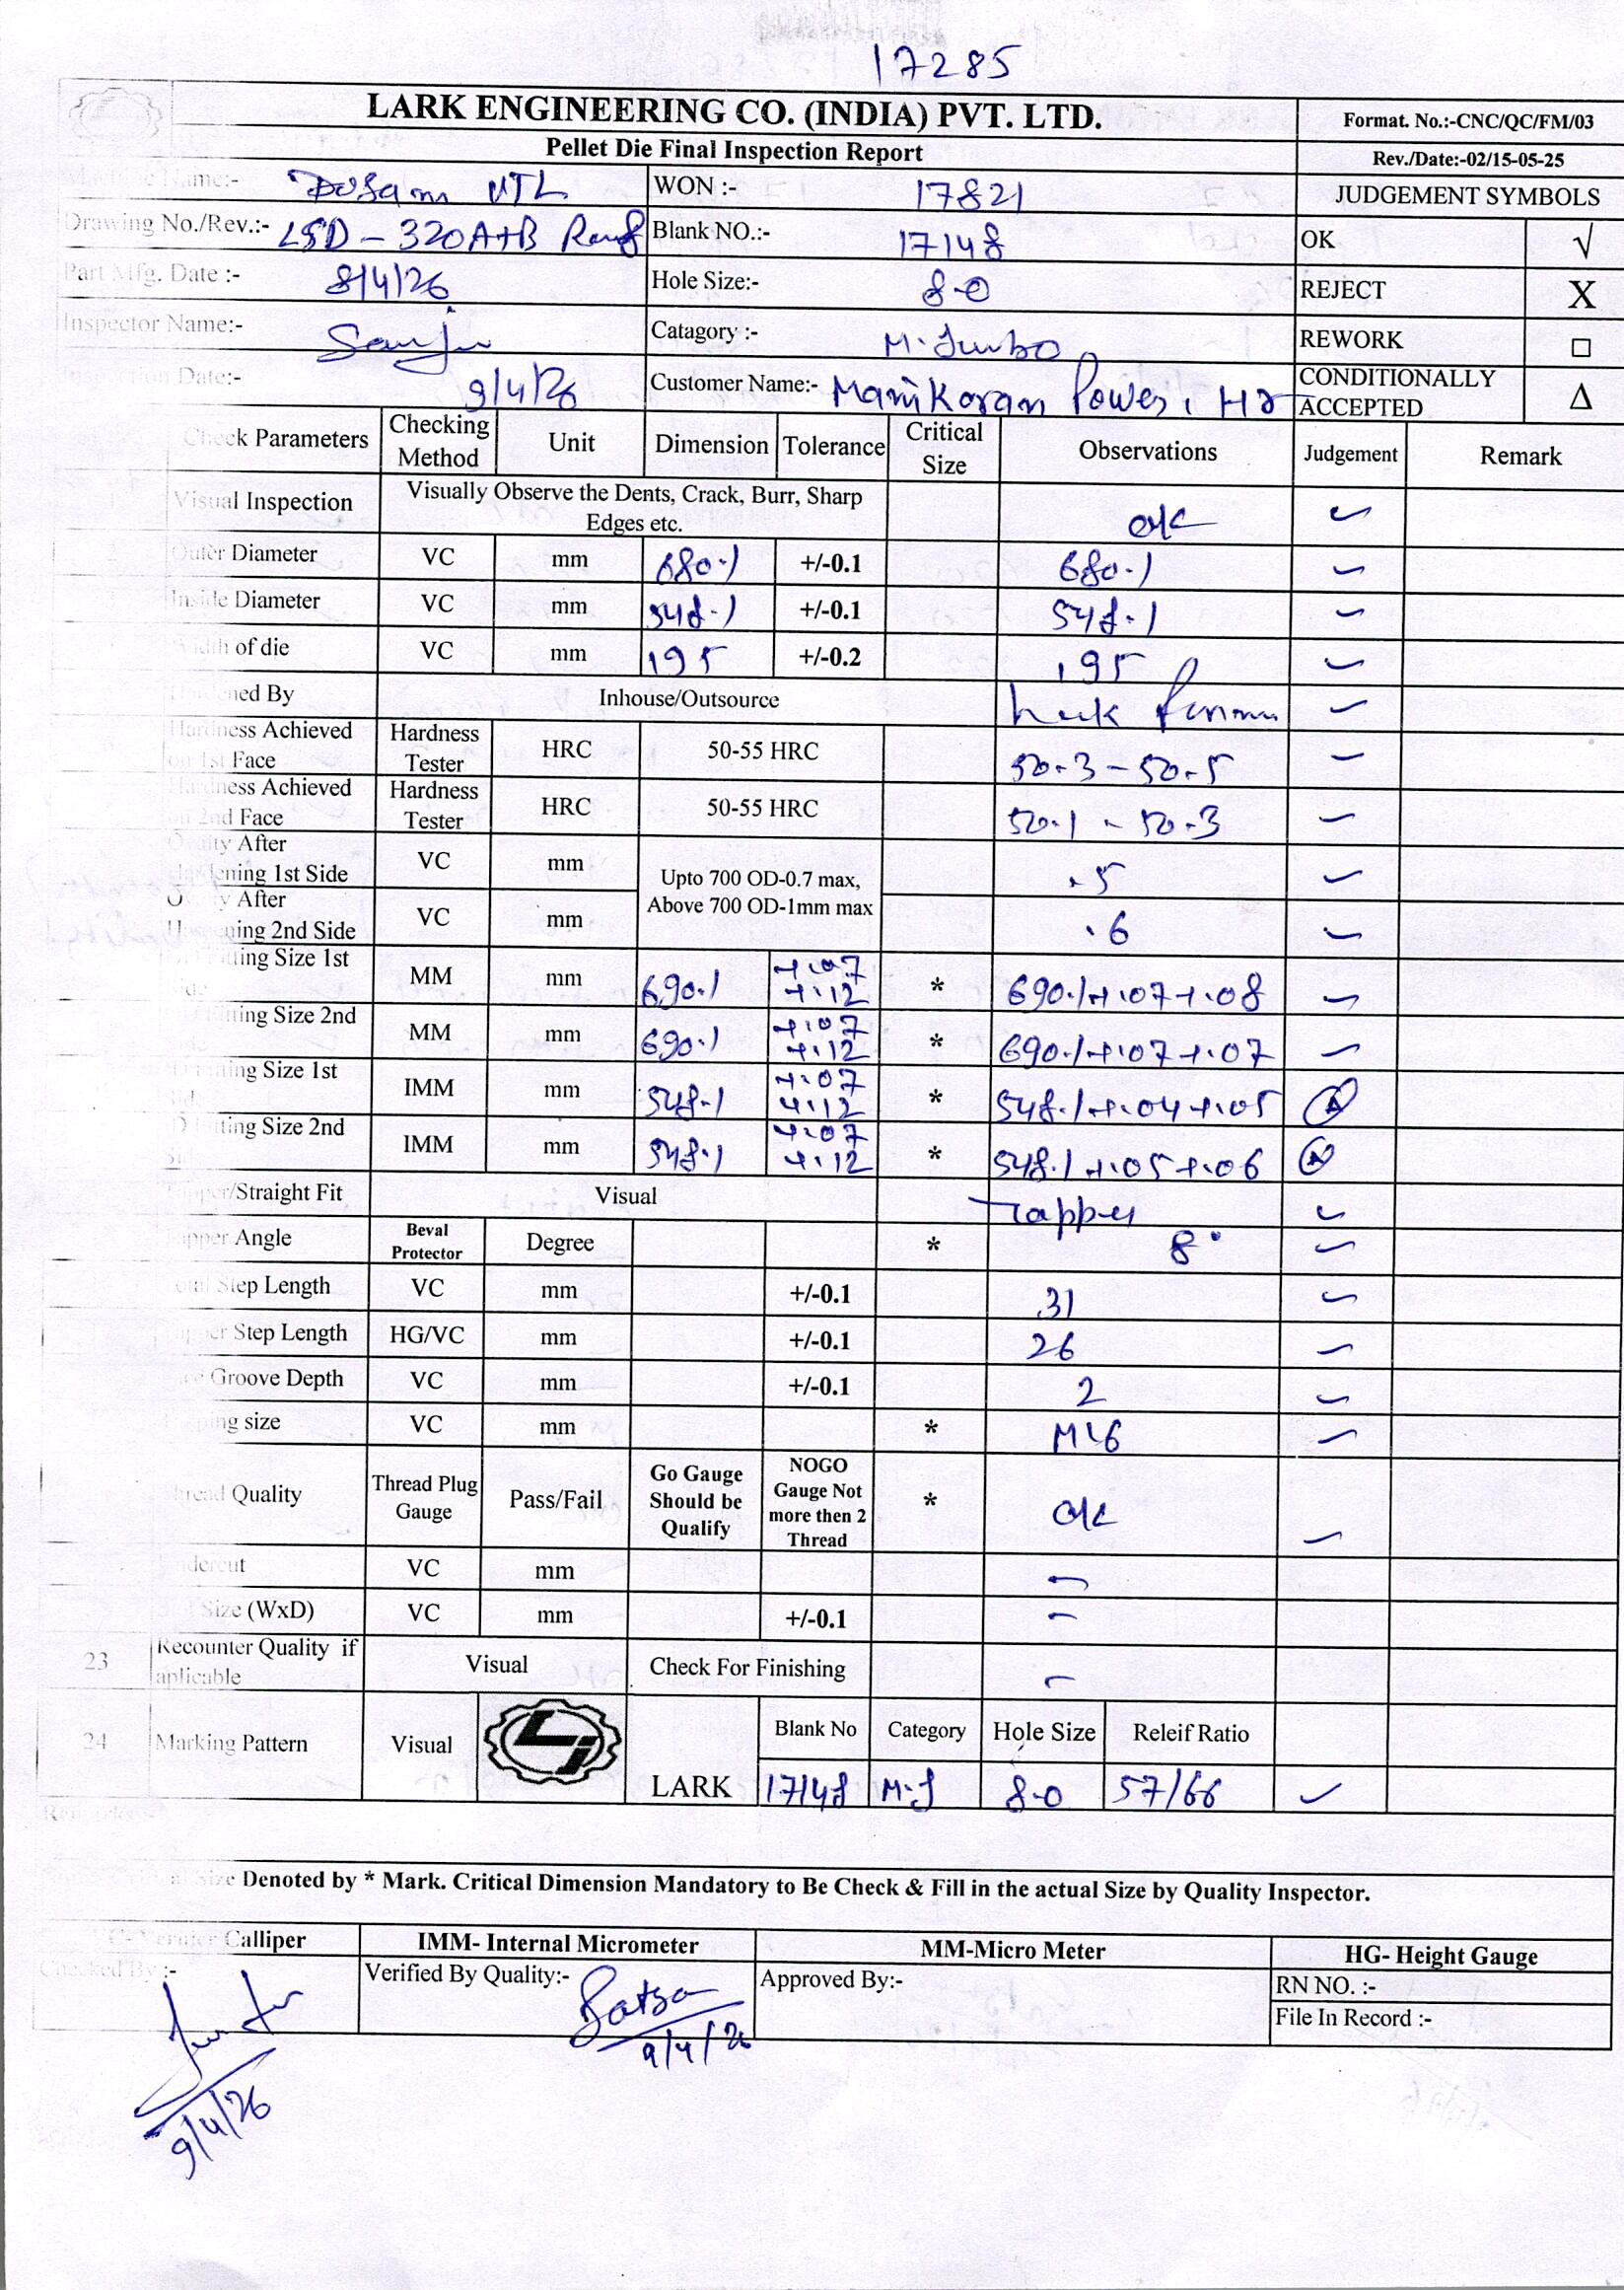 17285
LARK ENGINEERING CO. (INDIA) PVT. LTD.
Format. No.:-CNC/QC/FM/03
Pellet Die Final Inspection Report
Rev./Date:-02/15-05-25
Machine Name:- Dosam VTL
WON :- 17821
JUDGEMENT SYMBOLS
Drawing No./Rev.:- LSD-320A+B
Blank NO.:- 17148
OK √
Part Mfg. Date :- 8/4/26
Hole Size:- 8.0
REJECT X
Inspector Name:- Sanju
Catagory :- M.Jumbo
REWORK □
Inspection Date:- 9/4/26
Customer Name:- Manikaran Power,
CONDITIONALLY ACCEPTED Δ
Check Parameters Checking Method Unit Dimension Tolerance Critical Size Observations Judgement Remark
Visual Inspection Visually Observe the Dents, Crack, Burr, Sharp Edges etc. OK ✓
2 Outer Diameter VC mm 680.1 +/-0.1 680.1 ✓
Inside Diameter VC mm 548.1 +/-0.1 548.1 ✓
Width of die VC mm 195 +/-0.2 195 ✓
Hardened By Inhouse/Outsource ✓
Hardness Achieved on 1st Face Hardness Tester HRC 50-55 HRC 50.3-50.5 ✓
Hardness Achieved on 2nd Face Hardness Tester HRC 50-55 HRC 50.1-50.3 ✓
Ovality After Hardening 1st Side VC mm Upto 700 OD-0.7 max, Above 700 OD-1mm max .5 ✓
Ovality After Hardening 2nd Side VC mm .6 ✓
Fitting Size 1st MM mm 690.1 +.07 +.12 * 690.1+.07+.08 ✓
Fitting Size 2nd MM mm 690.1 +.07 +.12 * 690.1+.07+.07 ✓
Fitting Size 1st IMM mm 548.1 +.07 +.12 * 548.1+.04+.05
ID Fitting Size 2nd IMM mm 548.1 +.07 +.12 * 548.1+.05+.06
Tapper/Straight Fit Visual Tapper ✓
Tapper Angle Beval Protector Degree * 8° ✓
Total Step Length VC mm +/-0.1 31 ✓
Tapper Step Length HG/VC mm +/-0.1 26 ✓
Groove Depth VC mm +/-0.1 2 ✓
Tapping size VC mm * M16 ✓
Thread Quality Thread Plug Gauge Pass/Fail Go Gauge Should be Qualify NOGO Gauge Not more then 2 Thread * OK ✓
Undercut VC mm -
Size (WxD) VC mm +/-0.1 -
23 Recounter Quality if aplicable Visual Check For Finishing -
24 Marking Pattern Visual LARK Blank No Category Hole Size Releif Ratio
17148 M.J 8.0 57/66 ✓
Size Denoted by * Mark. Critical Dimension Mandatory to Be Check & Fill in the actual Size by Quality Inspector.
VC- Vernier Calliper IMM- Internal Micrometer MM-Micro Meter HG- Height Gauge
Checked By :- Verified By Quality:- Approved By:- RN NO. :-
File In Record :-
9/4/26
9/4/26